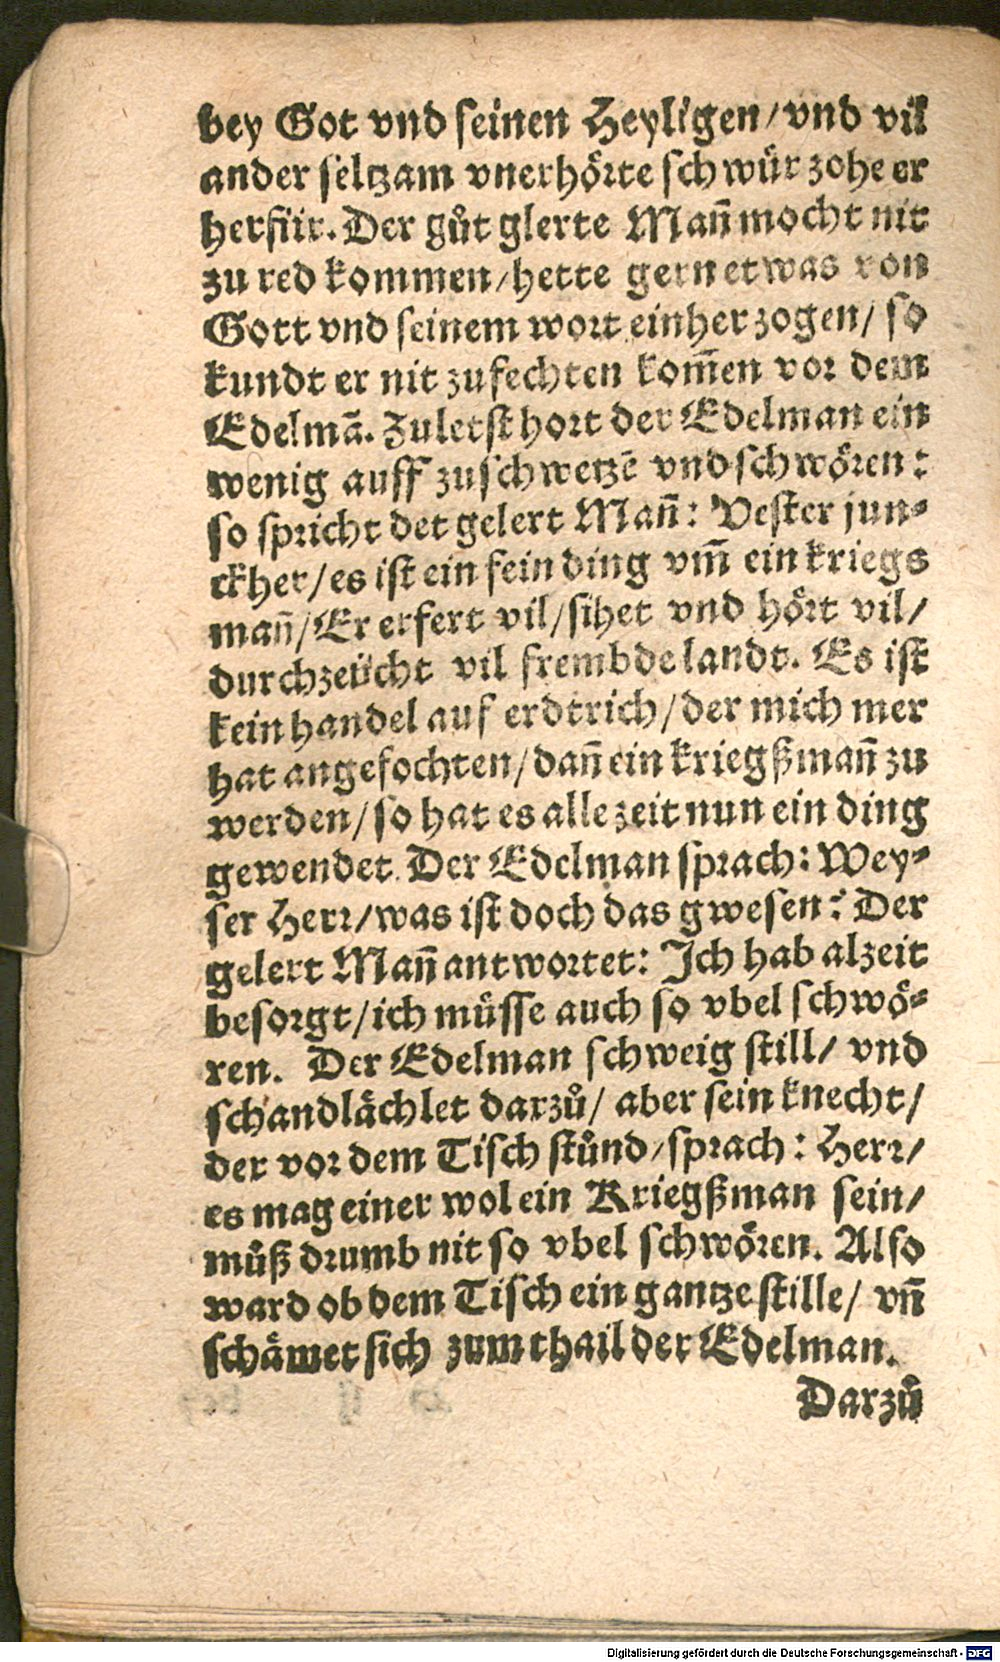 bey Got vnd seinen Heyligen/vnd vil
ander seltzam vnerhörte schwür zohe er
herfür. Der gůt glerte Mañ mocht nit
zu red kommen/hette gern etwas von
Gott vnd seinem wort einher zogen/ so
kundt er nit zufechten kom̃en vor dem
Edelmã. Zuletst hort der Edelman ein
wenig auff zuschwetzẽ vnd schwören:
so spricht det gelert Mañ: Vester jun-
ckher/es ist ein fein ding vm̃ ein kriegs
mañ/Er erfert vil/sihet vnd hört vil/
durchzeücht vil frembde landt. Es ist
kein handel auf erdtrich/der mich mer
hat angefochten/dañ ein kriegßmañ zu
werden/so hat es alle zeit nun ein ding
gewendet. Der Edelman sprach: Wey-
ser Herr/was ist doch das gwesen? Der
gelert Mañ antwortet: Ich hab alzeit
besorgt/ich müsse auch so vbel schwö-
ren. Der Edelman schweig still/ vnd
schandlächlet darzů/ aber sein knecht/
der vor dem Tisch stůnd/sprach: Herr/
es mag einer wol ein Kriegßman sein/
můß drumb nit so vbel schwören. Also
ward ob dem Tisch ein gantze stille/ vñ
schämet sich zum thail der Edelman.
Darzů
Digitalisierung gefördert durch die Deutsche Forschungsgemeinschaft - DFG